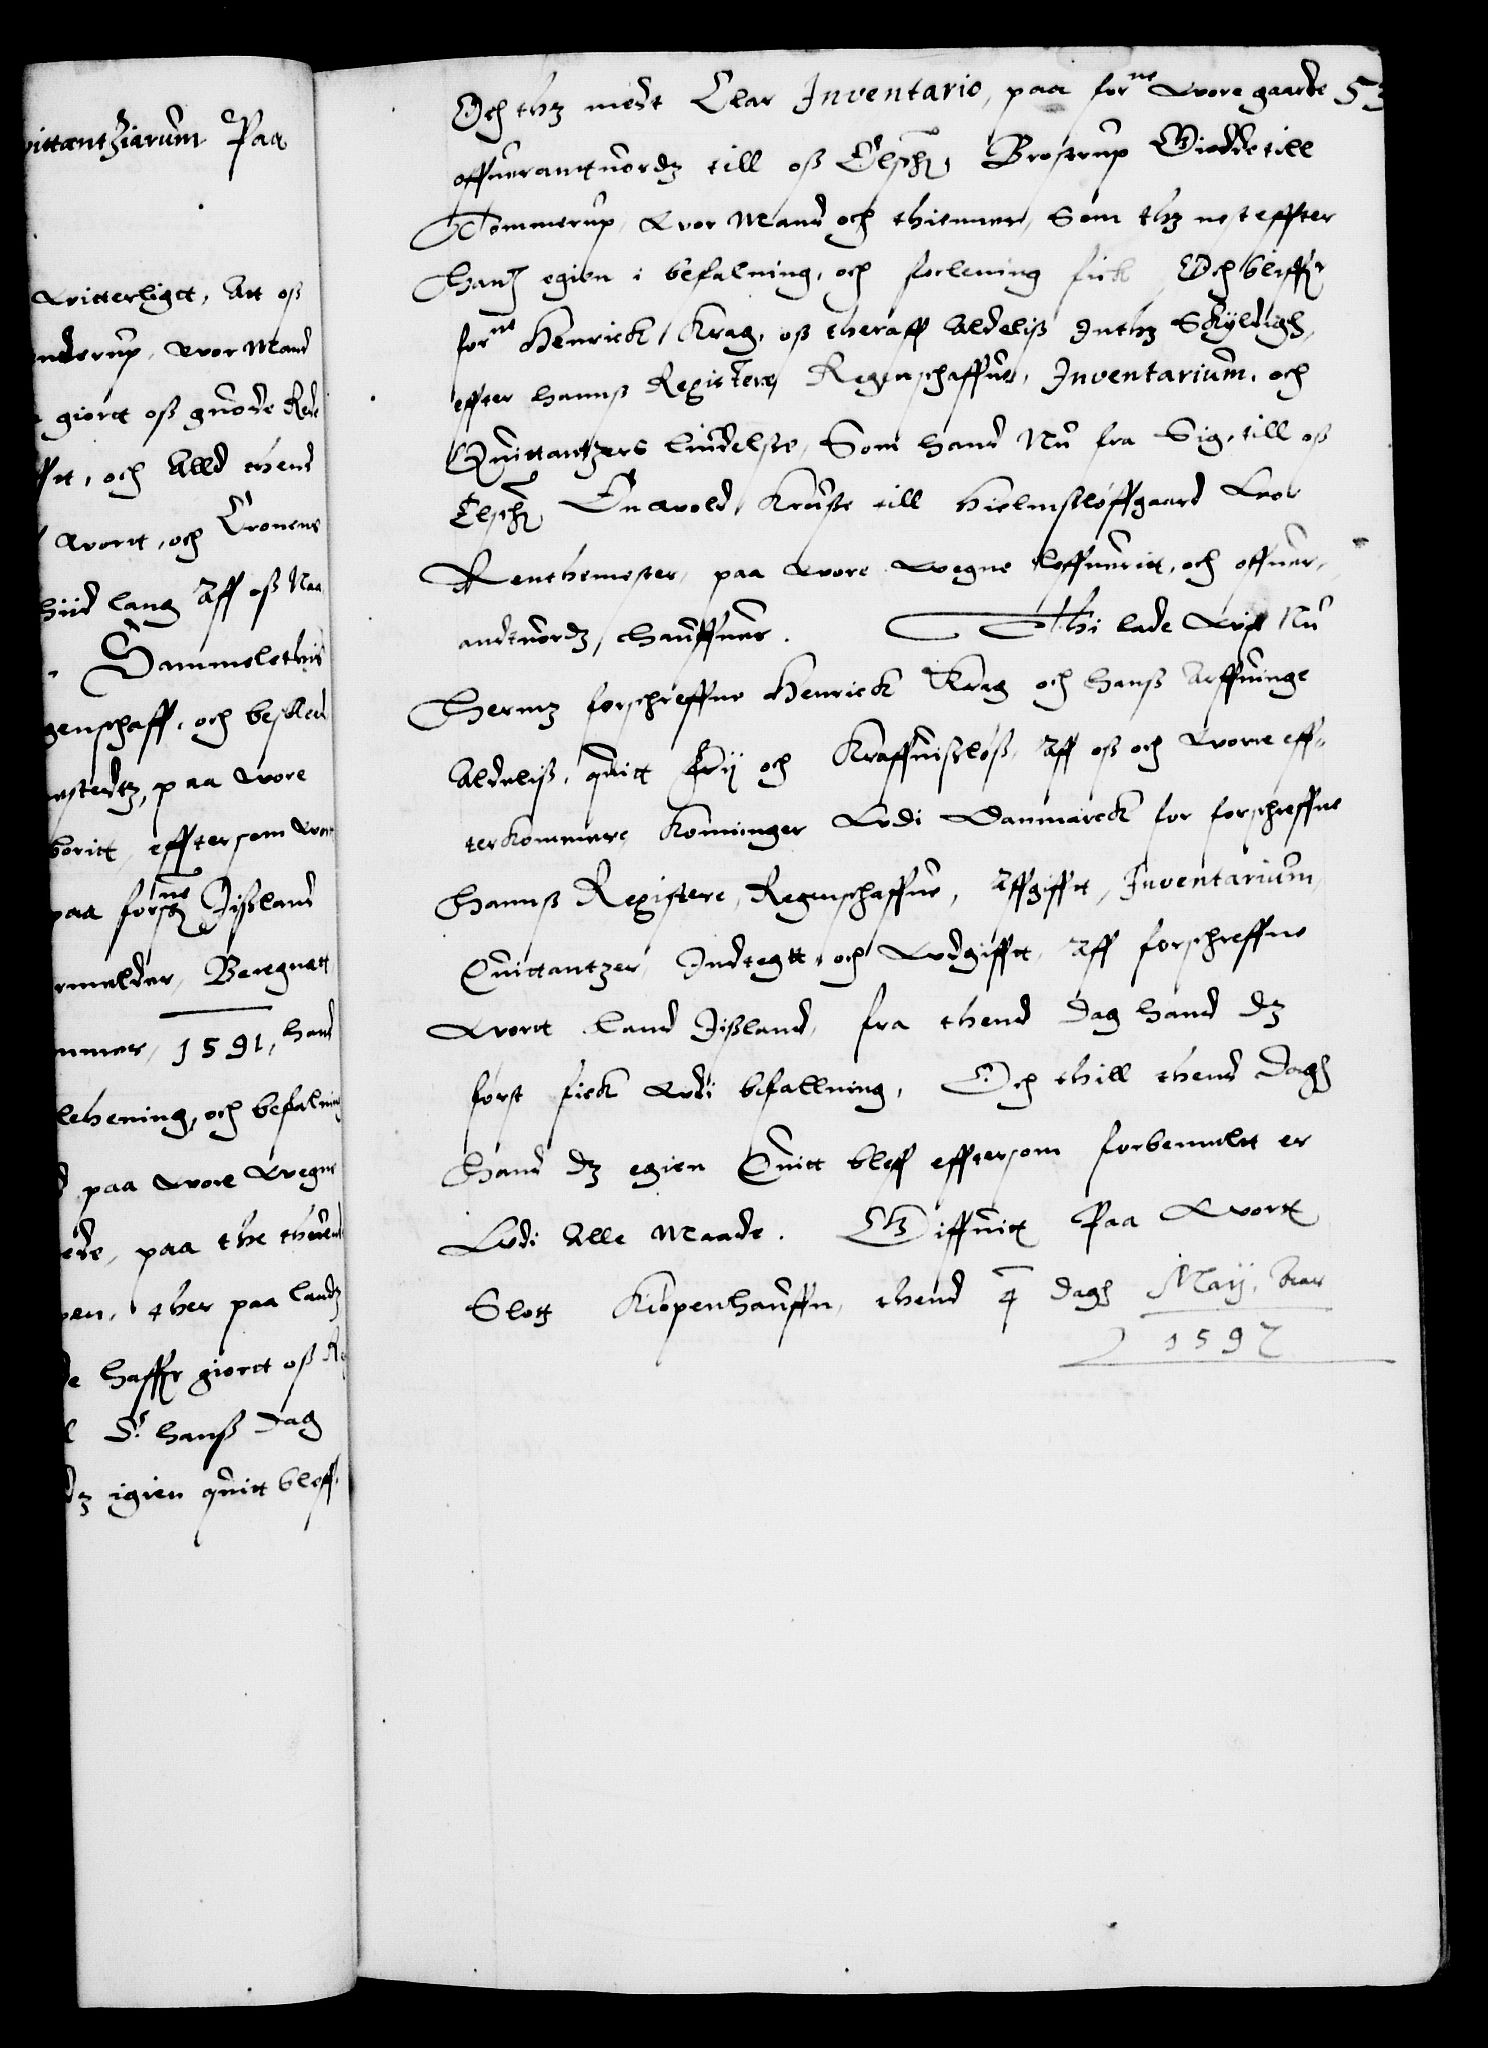 vittantziarum Paa
witterligtt, Att oß
nderup, wor Mand
giortt oß guode Rede
och Alld thend
wortt, och Cronens
hiid lang Aff oß Naa
Sammelethis
genschaff, och besked
stedtz, paa wore
boritt, efftersom wor
paa forsch:ne Jißland
rmelder, Beregnett
nmer, 1591, hand
lehening, och befalning
paa wore wegne
ede, paa the thuend
en, ther paa landz
de haffer giortt oß Re
St. hanß dag
dz igien quitt bleff
Och thz medt Clar Inventario, paa for:ne wore gaarde 53
offuerantuordz till oß Elsch: Brostrup Giedde till
Tommerup, wor Mand och thienner, Som thz nest effter
hanß egien i befalning, och forlening fick, Och bliffr
for:ne Henrick Krag, oß theraff Aldeliß Inthz Skyldigh,
effter hannß Registere, Regenschaffuer, Inventarium, och
Quittantzers liudelse, Som hand Nu fra Sig, till oß
Elsch: Enwold Kruse till Hielmsløffgaard wor
Renthemester, paa wore wegne leffuerit, och offuer,
andtuordz haffuer. Thi lade wij Nu
hermz forschreffne Henrick Krag och hanß Arffuinge
Aldeliß, quitt frij och Kraffuißløß, Aff oß och wore eff,
terkommere Konninger wdi Danmarck for forschreffne
hannß Registere, Regenschaffuer, Affgifft, Inventarium,
Quittantzer, Indtegtt, och wdgifft, Aff forschreffne
wortt land Jißland, fra thend dag hand dz
først fick wdi befallning, Och thill thend dagh
hand dz egien Quitt bleff efftersom forbemelt er
wdi Alle Maade. Giffuitt Paa wortt
Slott Kiøpenhauffn, thend 4 dagh Maij, Aar
1597